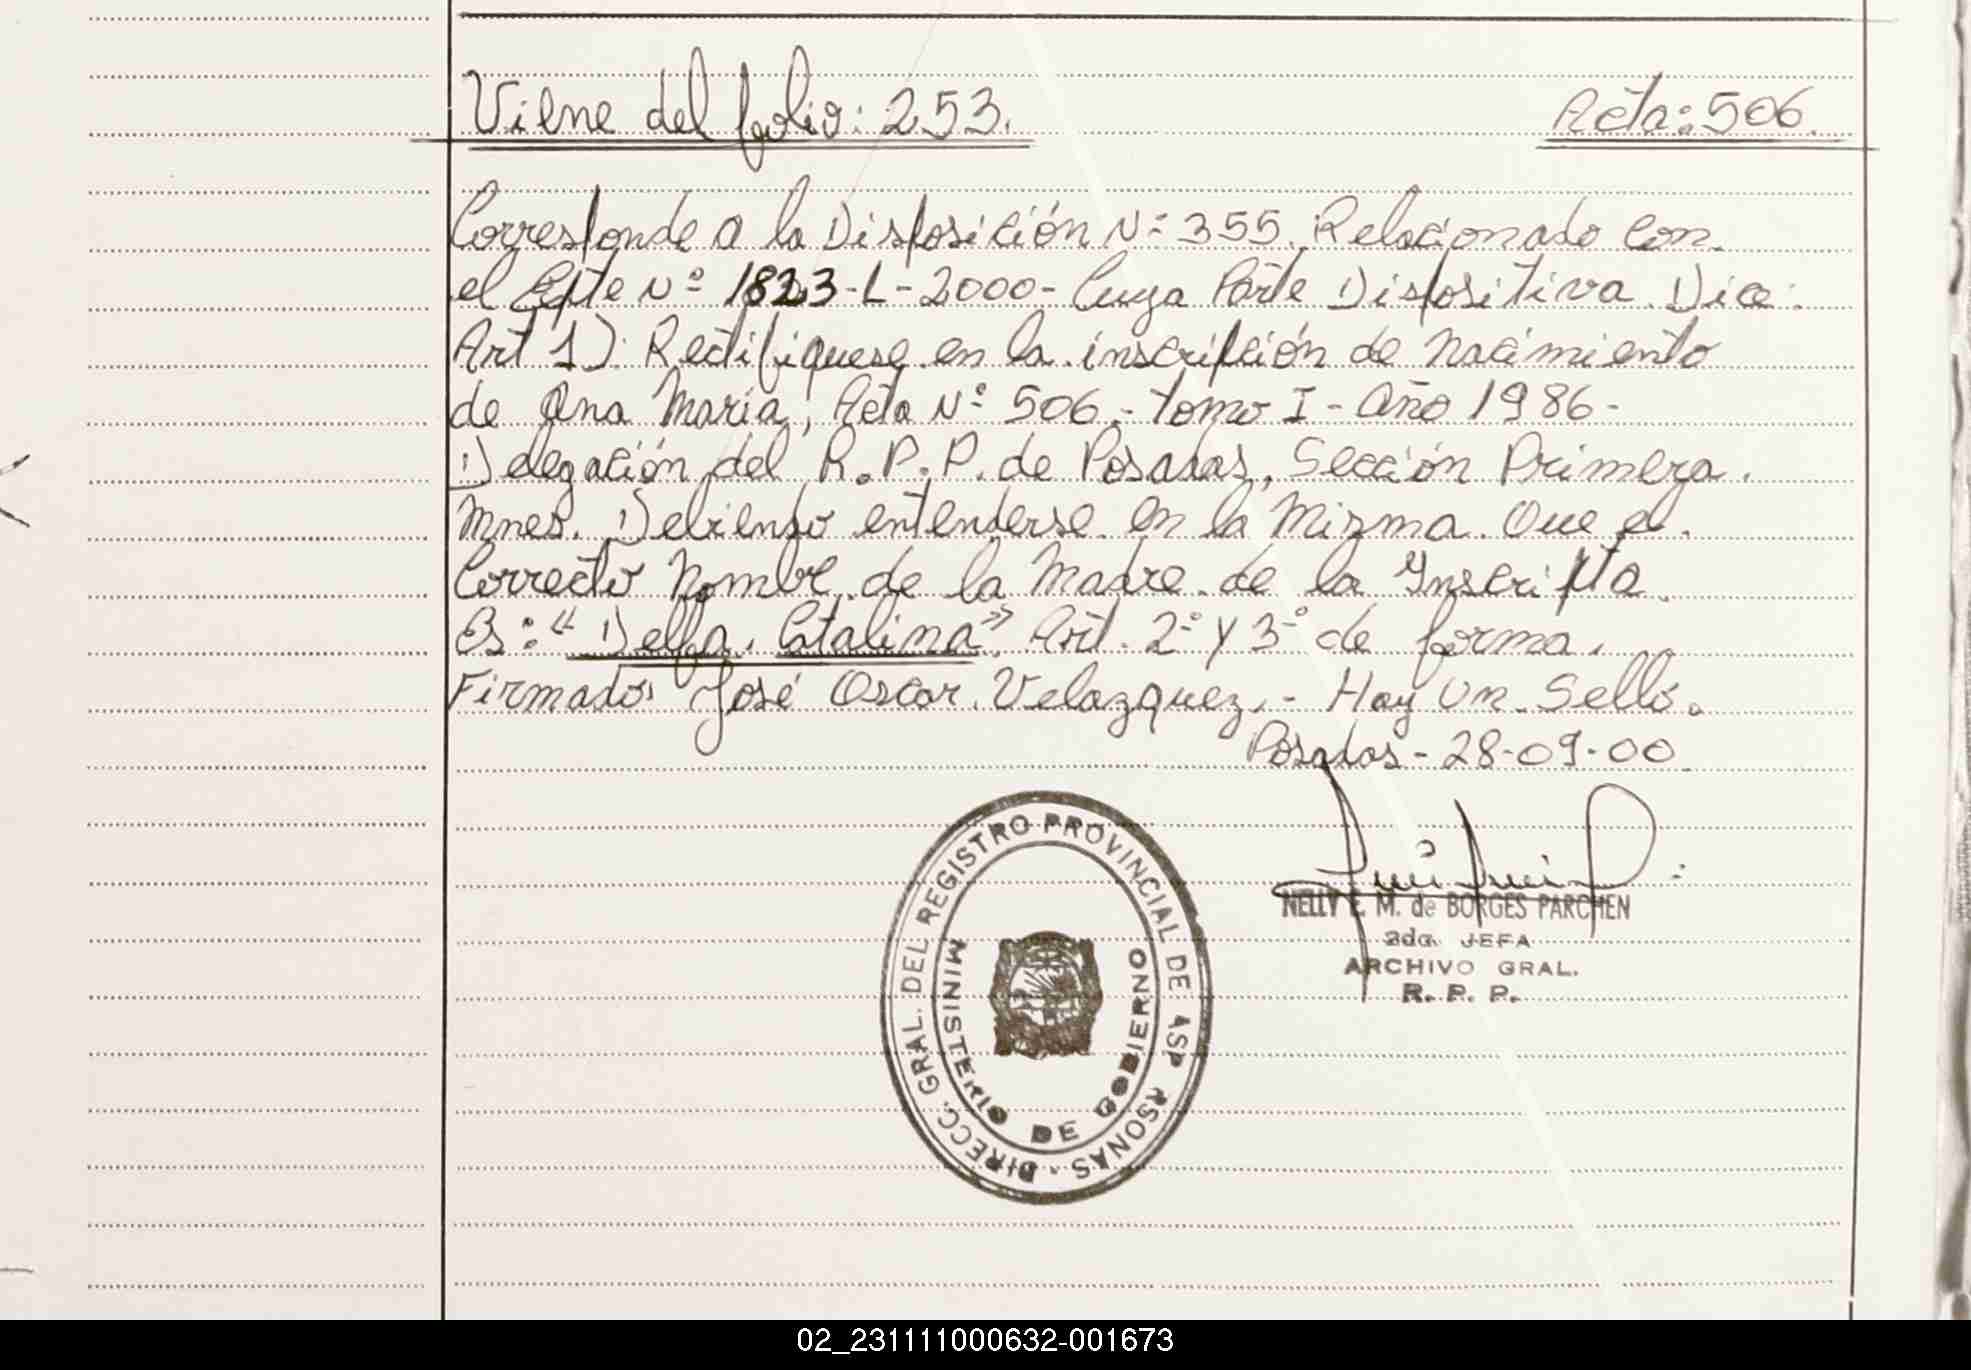 Viene del folio: 253. Acta: 506.
Corresponde a la Disposición Nº 355. Relacionado con
el Epte Nº 1823-L-2000- Cuya Parte Dispositiva Dice:
Art 1): Rectifiquese en la inscripción de Nacimiento
de Ana María, Acta Nº 506.- tomo I - Año 1986-
Delegación del R.P.P. de Posadas, Sección Primera.
Mnes. Debiendo entenderse en la Mizma. Que el
Correcto Nombre de la Madre de la Inscripta
Es: "Delfa. Catalina" Art. 2º y 3º de forma.
Firmado: José Oscar Velazquez.- Hay Un Sello.
Posadas - 28-09-00
NELLY E. M. de BORGES PARCHEN
2da. JEFA
ARCHIVO GRAL.
R. P. P.
DIRECC. GRAL. DEL REGISTRO PROVINCIAL DE
MINISTERIO DE GOBIERNO
02_231111000632-001673